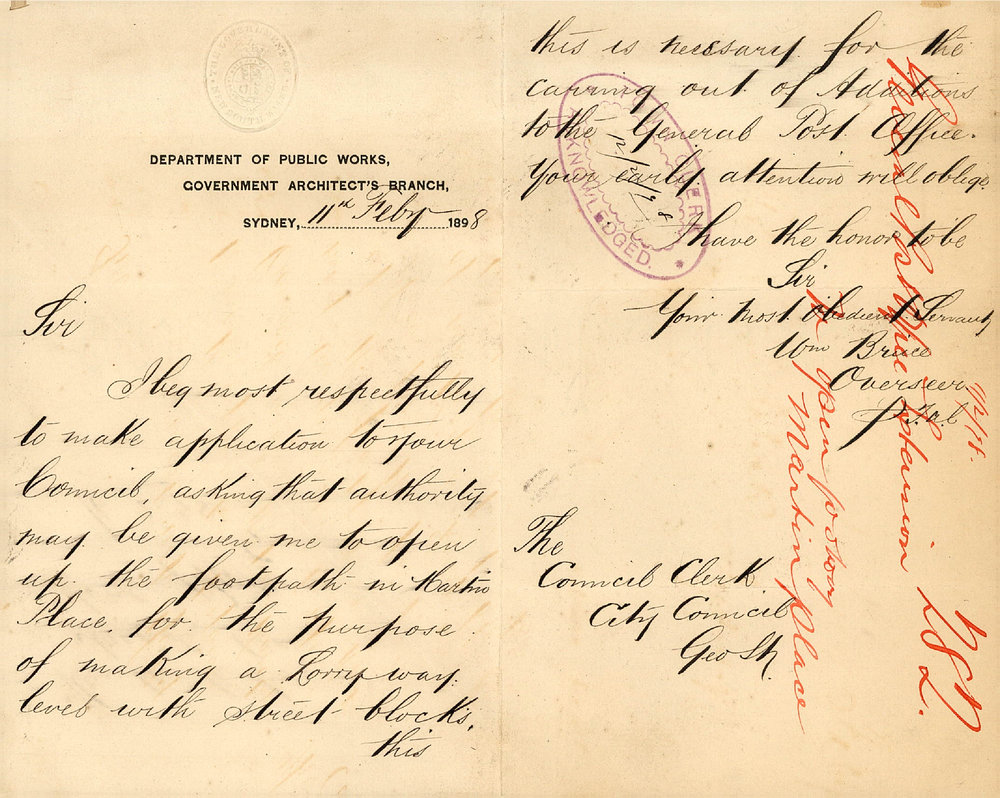 DEPARTMENT OF PUBLIC WORKS,
GOVERNMENT ARCHITECT'S BRANCH,
SYDNEY, 11th Feby 1898
Sir
I beg most respectfully
to make application to your
Council, asking that authority
may be given me to open
up the footpath in Martin
Place, for the purpose
of making a Lorry way
level with street blocks,
this
this is necessary for the
carring out of Additions
to the General Post Office.
Your early attention will oblige,
I have the honor to be
Sir
Your most obedient Servant
Wm Bruce
Overseer
The
Council Clerk
City Council
Geo St.
CLERK
ACKNOWLEDGED.
General Post Office Extension
to open footway
Martin place